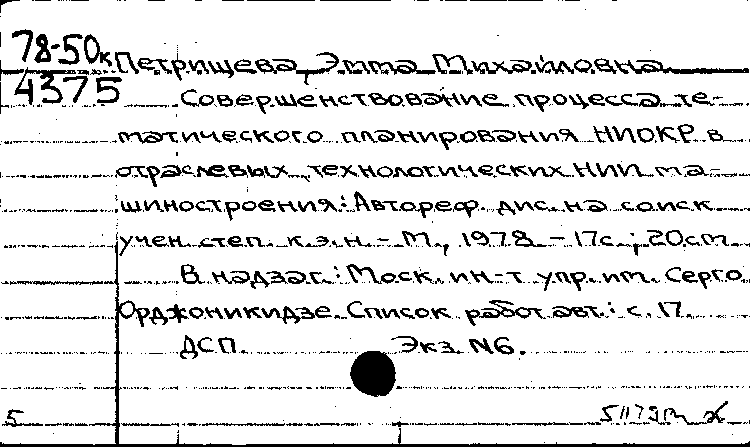 78-50к Петрищева, Эмма Михайловна.
4375 Совершенствование процесса те-
матического планирования НИОКР в
отраслевых технологических НИИ ма-
шиностроения: Автореф. дис. на соиск
учен. степ. к.э.н. - М., 1978. - 17с.; 20см
В надзаг.: Моск. ин-т упр. им. Серго
Орджоникидзе. Список работ авт.: с. 17.
ДСП. Экз. N6.
5